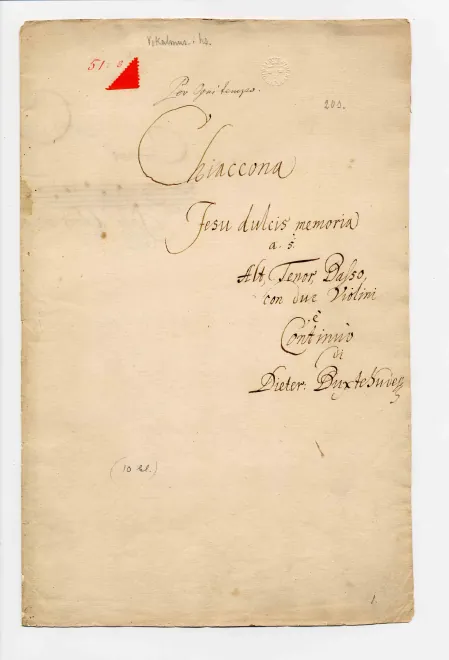 Vokalmus. i hs.
51:
Per Ogni tempo.
203.
Chiaccona
Jesu dulcis memoria
a. 5.
Alt, Tenor, Basso,
con due Violini
è
Continuo
di
Dieter: Buxtehude
(10 bl.)
1.